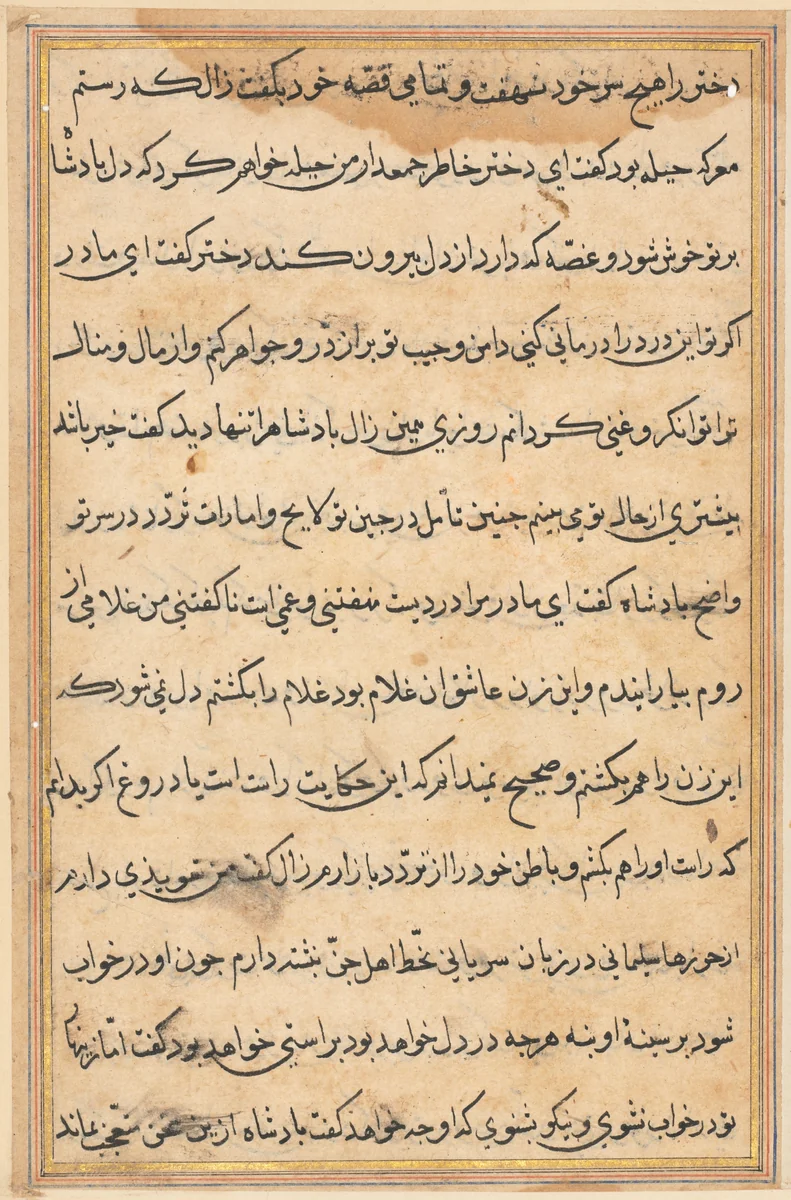 دختر را هیچ سر خود ننهفت و تمامی قصّه خود بکفت زال که رستم
معرکه حیله بود کفت ای دختر خاطر جمعدار من حیله خواهم کرد که دل بادشاه
بر تو خوش شود و غصّه که دارد از دل بیرون کند دختر کفت ای مادر
اکر تو این درد را درمانی کنی دامن و جیب تو بر از دُر و جواهر کنم و از مال و منال
ترا توانکر و غنی کردانم روزی همین زال بادشاه را تنها دید کفت خیر باشد
بیشتری از حال تو می بینم جنین تأمل در جبین تو لایح و امارات تَردّد در سر تو
واضح بادشاه کفت ای مادر مرا دردیست نهفتنی و غمی است ناکفتنی من غلامی از
روم بیارانیدم و این زن عاشق ان غلام بود غلام را بکشتم دل نمی شود که
این زن را هم بکشتم و صحیح نمیدانم که این حکایت راست است یا دروغ اکر بدانم
که راست او را هم بکشم و باطن خود را از تردّد باز ارم زال کفت من تعویذی دارم
از حرزها سلیمانی در زبان سریانی بخّط اهل جنّ نبشته دارم جون او در خواب
شود بر سینهٔ او بنه هرجه در دل خواهد بود براستی خواهد بود کفت امّا زینهار
تو در خواب نشوی و نیکو بشنوی که او جه خواهد کفت بادشاه ازین سخن متعّجب بماند